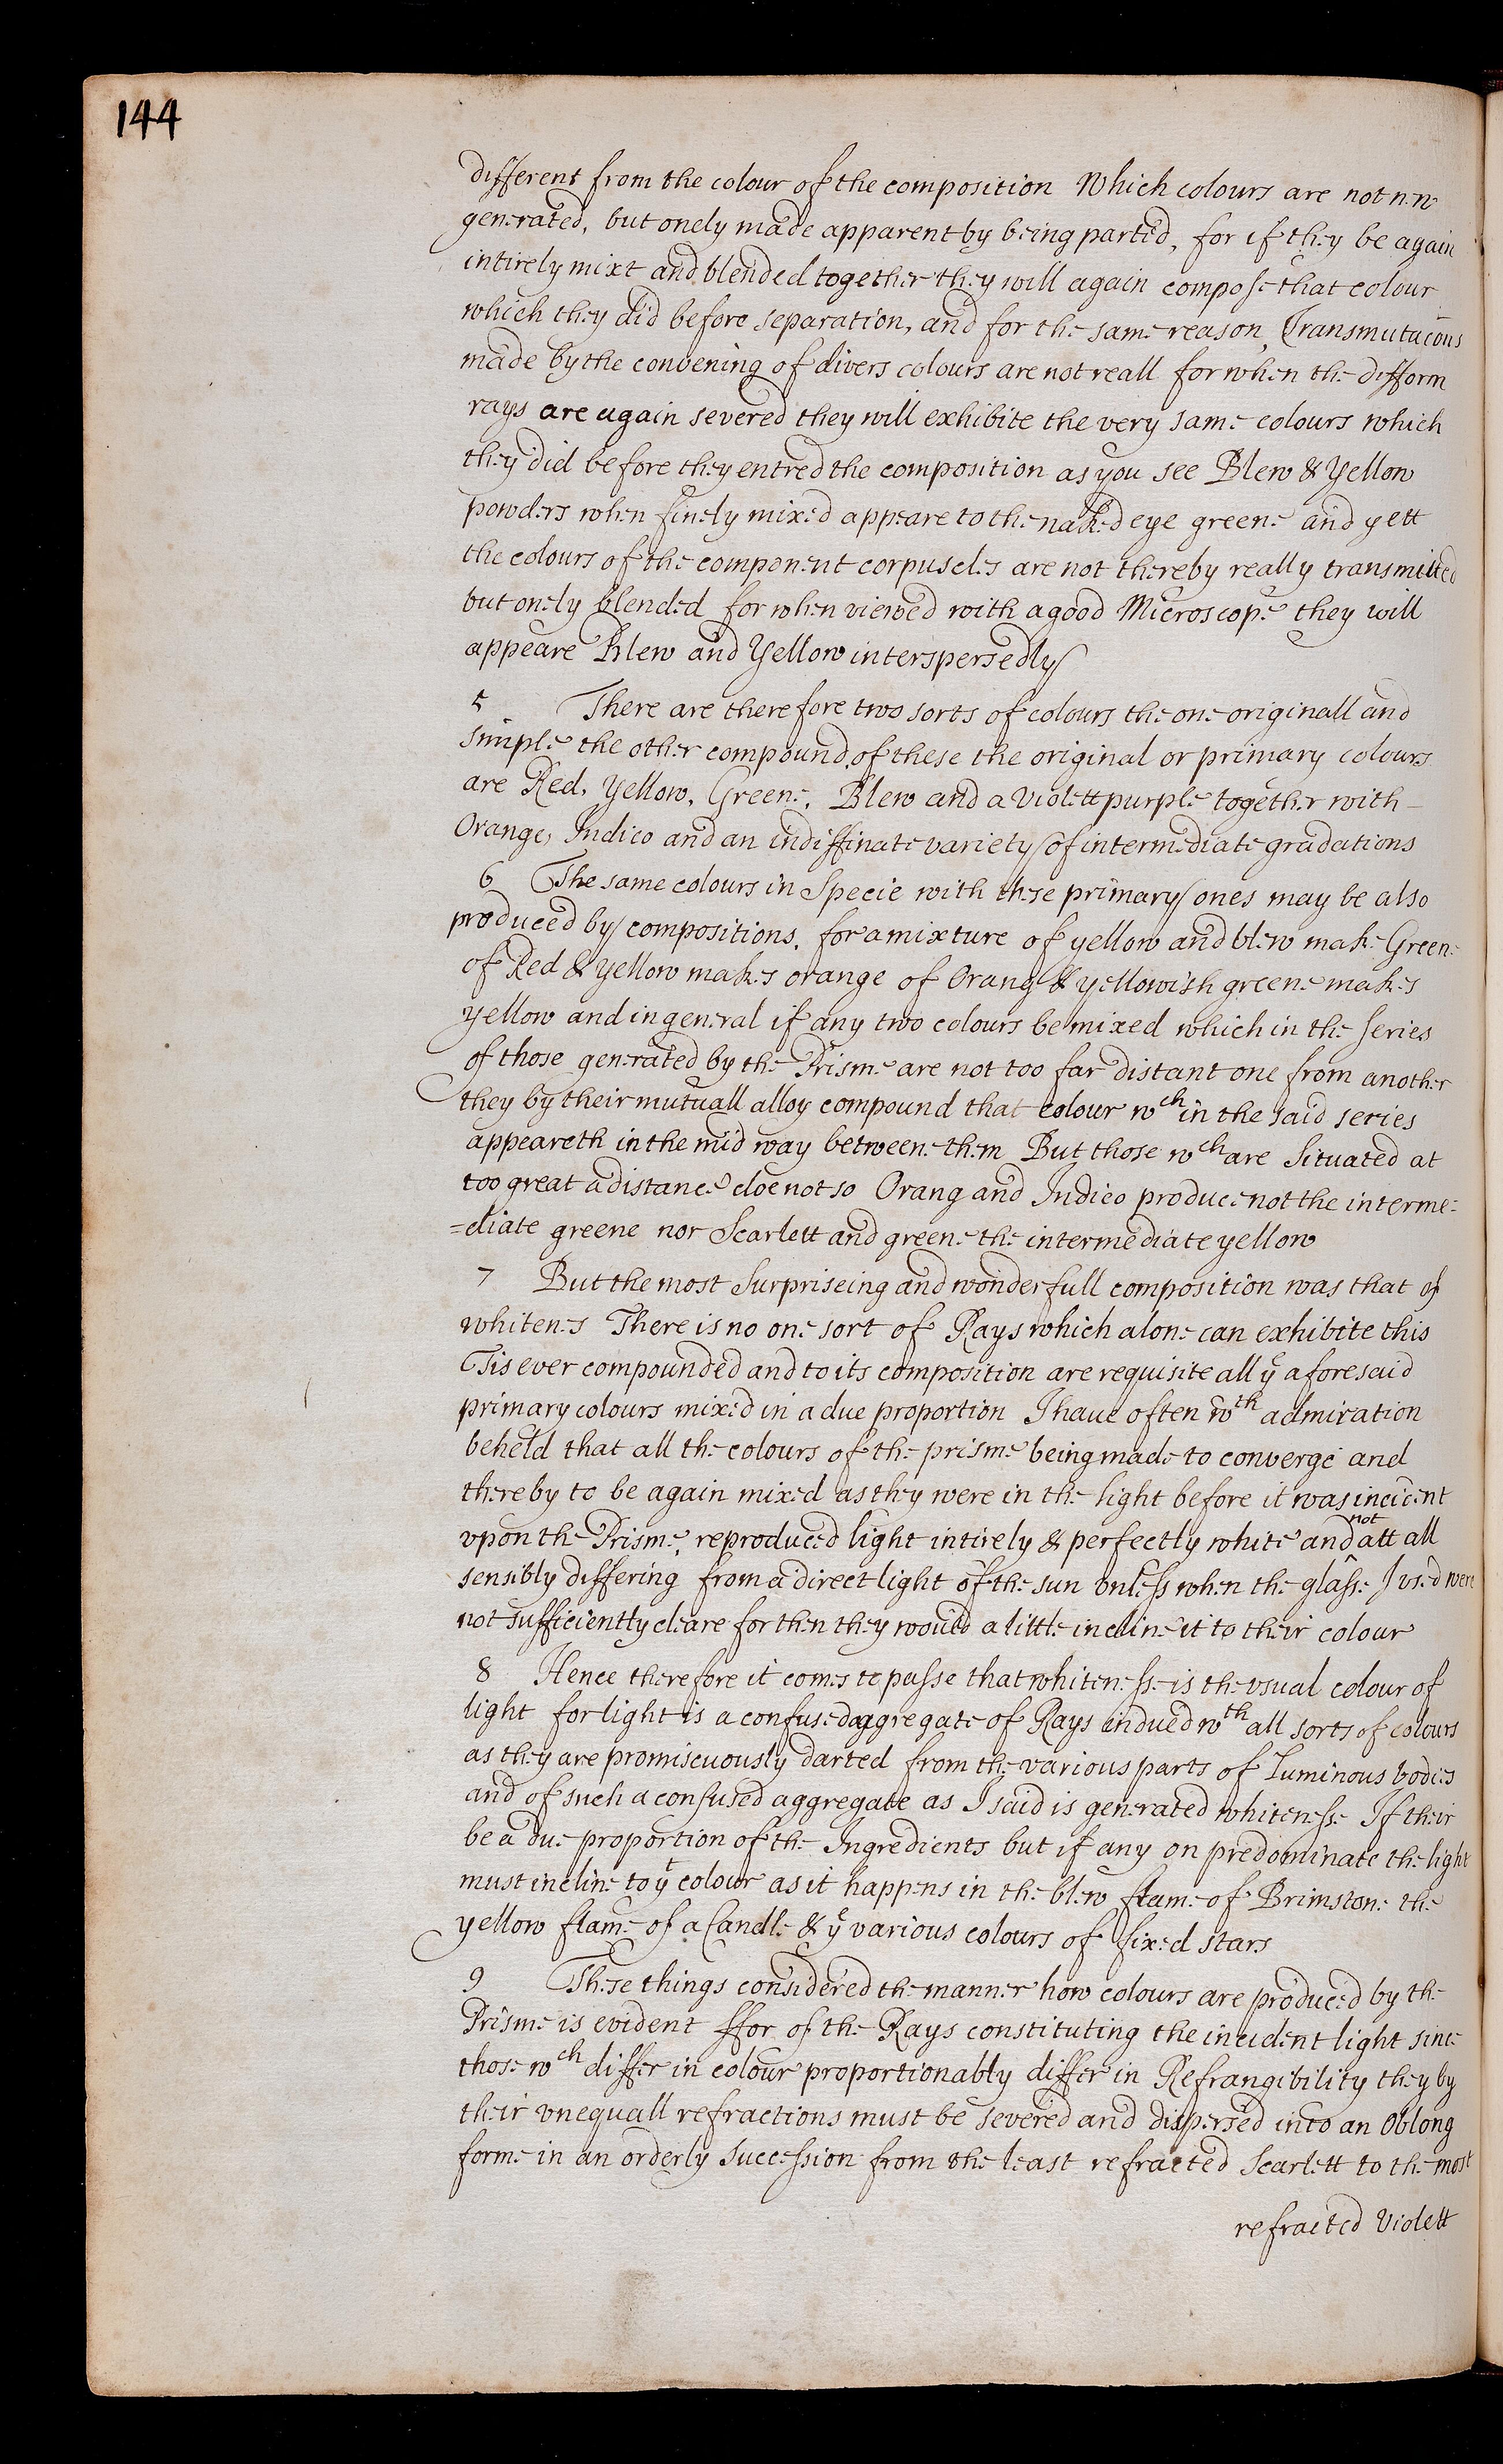 144
different from the colour of the composition Which colours are not new
generated, but onely made apparent by being parted, for if they be again
intirely mixt and blended together they will again compose that colour
which they did before separation, and for the same reason, Transmutacons
made by the convening of divers colours are not reall for when the difform
rays are again severed they will exhibite the very same colours which
they did before they entred the composition as you see Blew & Yellow
powders when finely mixed appeare to the naked eye greene and yett
the colours of the component corpuscles are not thereby really transmitted
but onely blended for when viewed with a good Microscope they will
appeare Blew and Yellow interspersedly
5 There are therefore two sorts of colours the one originall and
simple the other compound. of these the original or primary colours
are Red, Yellow, Greene, Blew and a Violett purple together with
Orange, Indico and an indiffinate variety of intermediate gradations
6 The same colours in Specie with these primary ones may be also
produced by compositions. for a mixture of yellow and blew make Greene
of Red & Yellow makes orange of Orang & yellowish greene makes
yellow and in general if any two colours be mixed which in the series
of those generated by the Prisme are not too far distant one from another
they by their mutuall alloy compound that colour wch in the said series
appeareth in the mid way betweene them But those wch are situated at
too great a distance doe not so Orang and Indico produce not the interme=
=diate greene nor Scarlett and greene the intermediate yellow
7 But the most surpriseing and wonderfull composition was that of
whitenes There is no one sort of Rays which alone can exhibite this
Tis ever compounded and to its composition are requisite all ye aforesaid
primary colours mixed in a due proportion I haue often wth admiration
beheld that all the colours of the prisme being made to converge and
thereby to be again mixed as they were in the light before it was incident
vpon the Prisme, reproduced light intirely & perfectly white and not att all
sensibly differing from a direct light of the sun vnless when the glasse I vsed were
not sufficiently cleare for then they would a little incline it to their colour
8 Hence therefore it comes to passe that whitenesse is the vsual colour of
light for light is a confused aggregate of Rays indued wth all sorts of colours
as they are promiscuously darted from the various parts of Luminous bodies
and of such a confused aggregate as I said is generated whitenesse If their
be a due proportion of the Ingredients but if any on predominate the light
must incline to yt colour as it happens in the blew flame of Brimstone the
yellow flame of a Candle & ye various colours of fixed stars
9 These things considered the manner how colours are produced by the
Prisme is evident ffor of the Rays constituting the incident light since
those wch differ in colour proportionably differ in Refrangibility they by
their vnequall refractions must be severed and dispersed into an Oblong
forme in an orderly succession from the least refracted Scarlett to the most
refracted Violett